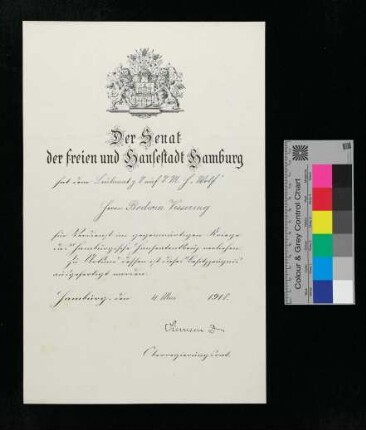 Der Senat
der freien und Hansestadt Hamburg
hat dem Leutnant z. S. auf S. M. H. "Wolf"
Herrn
für Verdienst im gegenwärtigen Kriege
das Hamburgische Hanseatenkreuz verliehen.
Zu Urkund dessen ist dieses Besitzzeugnis
ausgefertigt worden.
Hamburg, den 4. 1918.
Oberregierungsrat.
Colour & Grey Control Chart